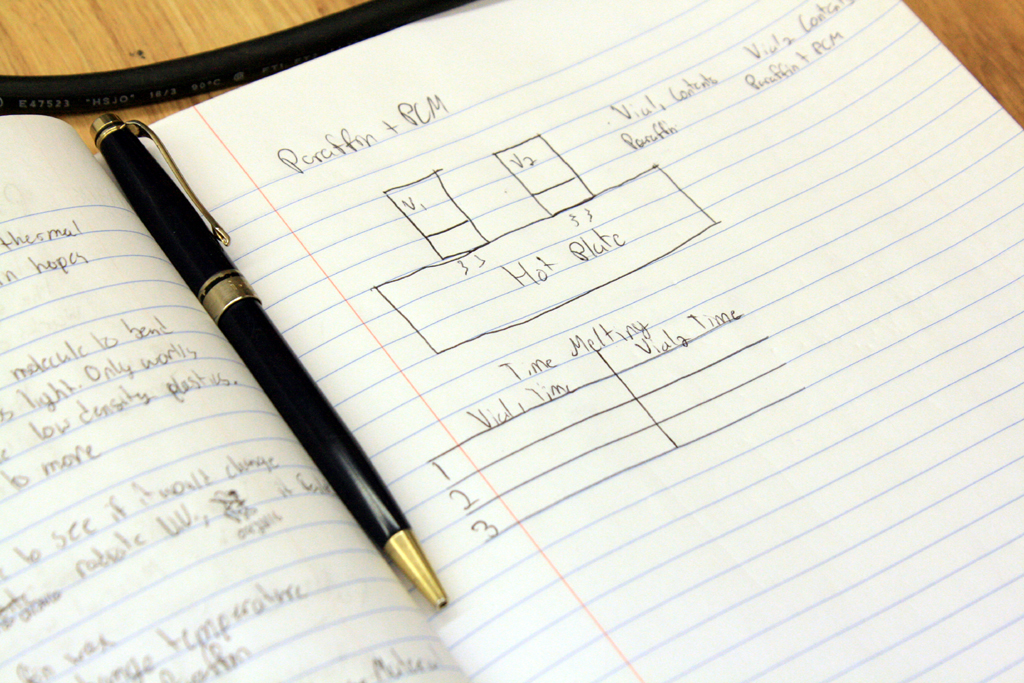 E47523 "HSJO" 16/3 90°C
thermal
in hopes
molecule to bend
light. Only works
low density plastics.
to more
to see if it won't change
radiate UV,
organic
wax
change temperature
Paraffin
Material
Paraffin + PCM
Vial 1 Contents
Paraffin
Vial 2 Contents
Paraffin + PCM
V1
V2
Hot Plate
Time Melting
Vial 1 Time
Vial 2 Time
1
2
3